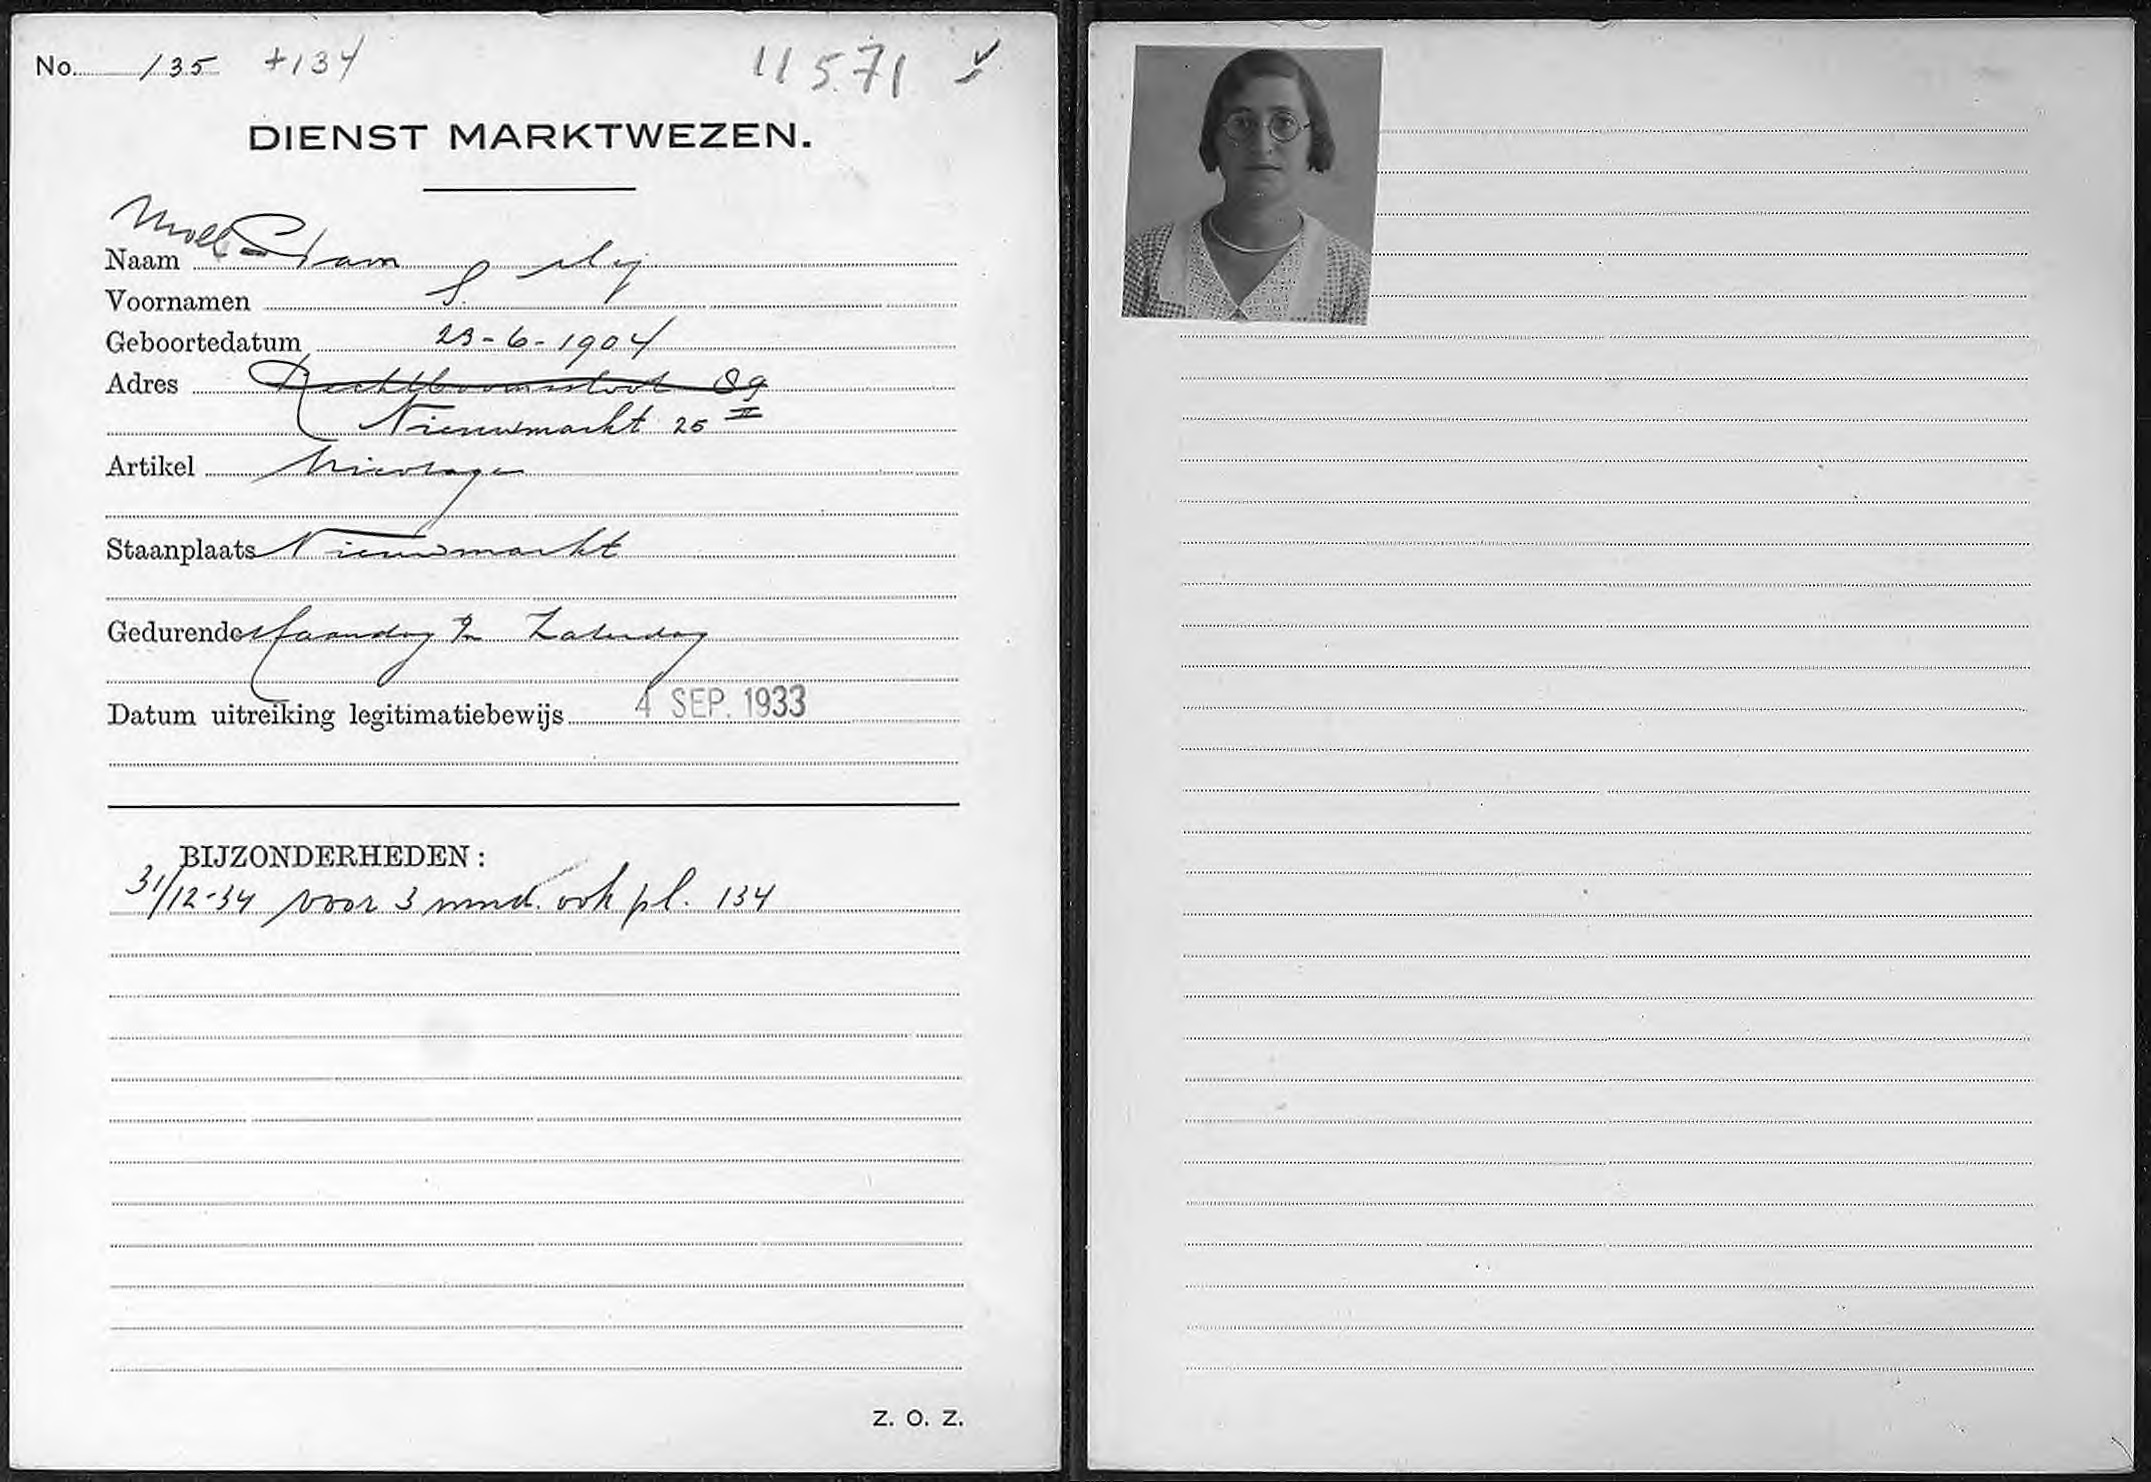 No. 135 +134 11571
DIENST MARKTWEZEN.
Moll
Naam Dam
Voornamen S.
Geboortedatum 23-6-1904
Adres Rechtboomssloot 89
Nieuwmarkt 25 II
Artikel
Staanplaats Nieuwmarkt
Gedurende Maandag t/m Zaterdag
Datum uitreiking legitimatiebewijs 4 SEP. 1933
BIJZONDERHEDEN:
31/12-34 voor 3 mnd. ook pl. 134
Z. O. Z.